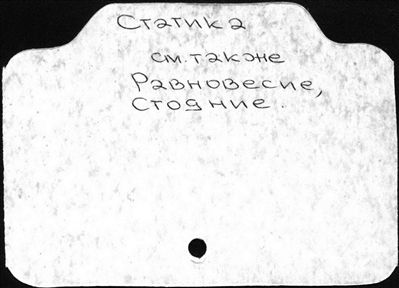 Статика
см. также
Равновесие,
Стояние.